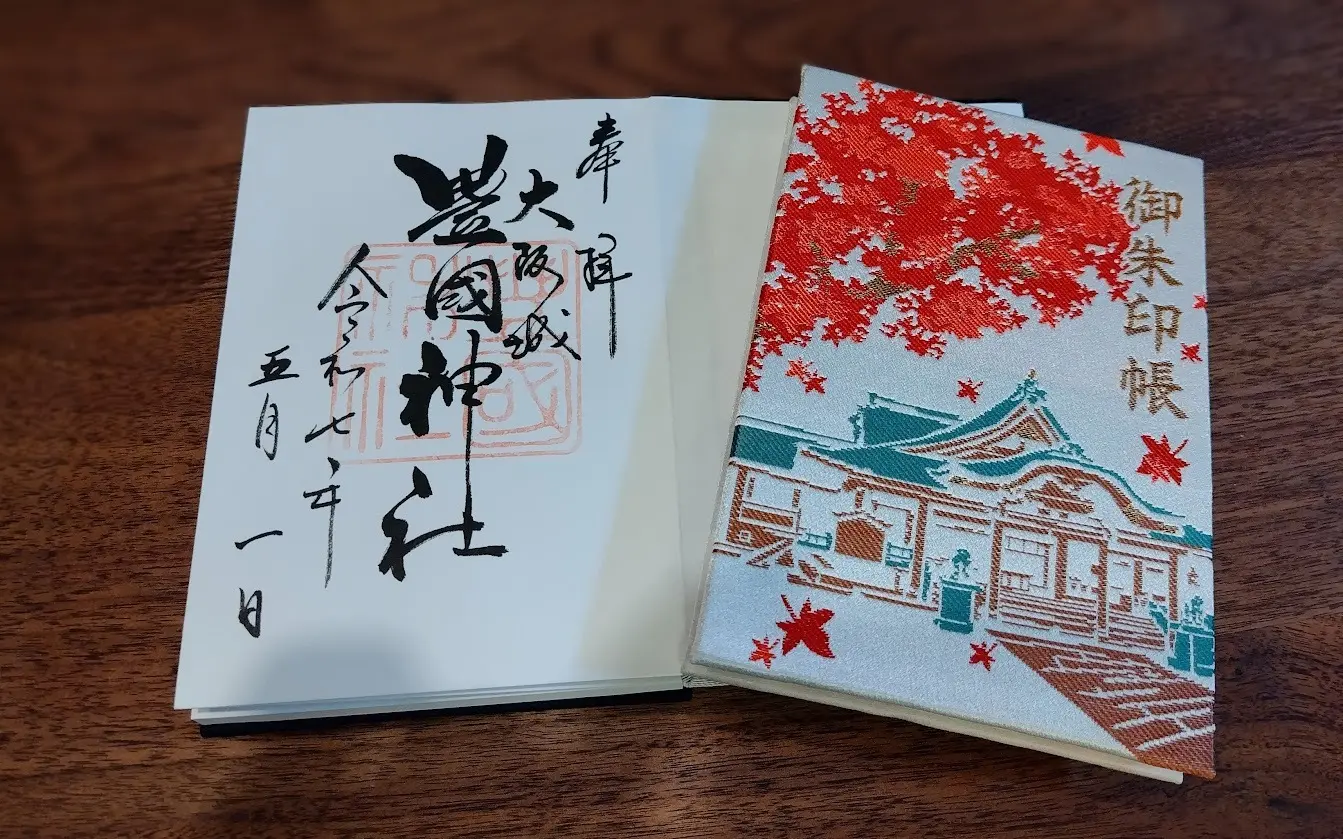 奉拝
大阪城
豊國神社
令和七年
五月一日
豊國
神社
御朱印帳